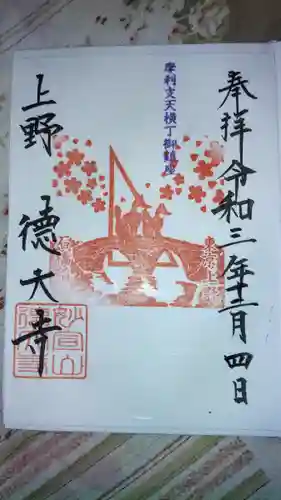 奉拝 令和三年十二月四日
摩利支天横丁御鎮座
上野 德大寺